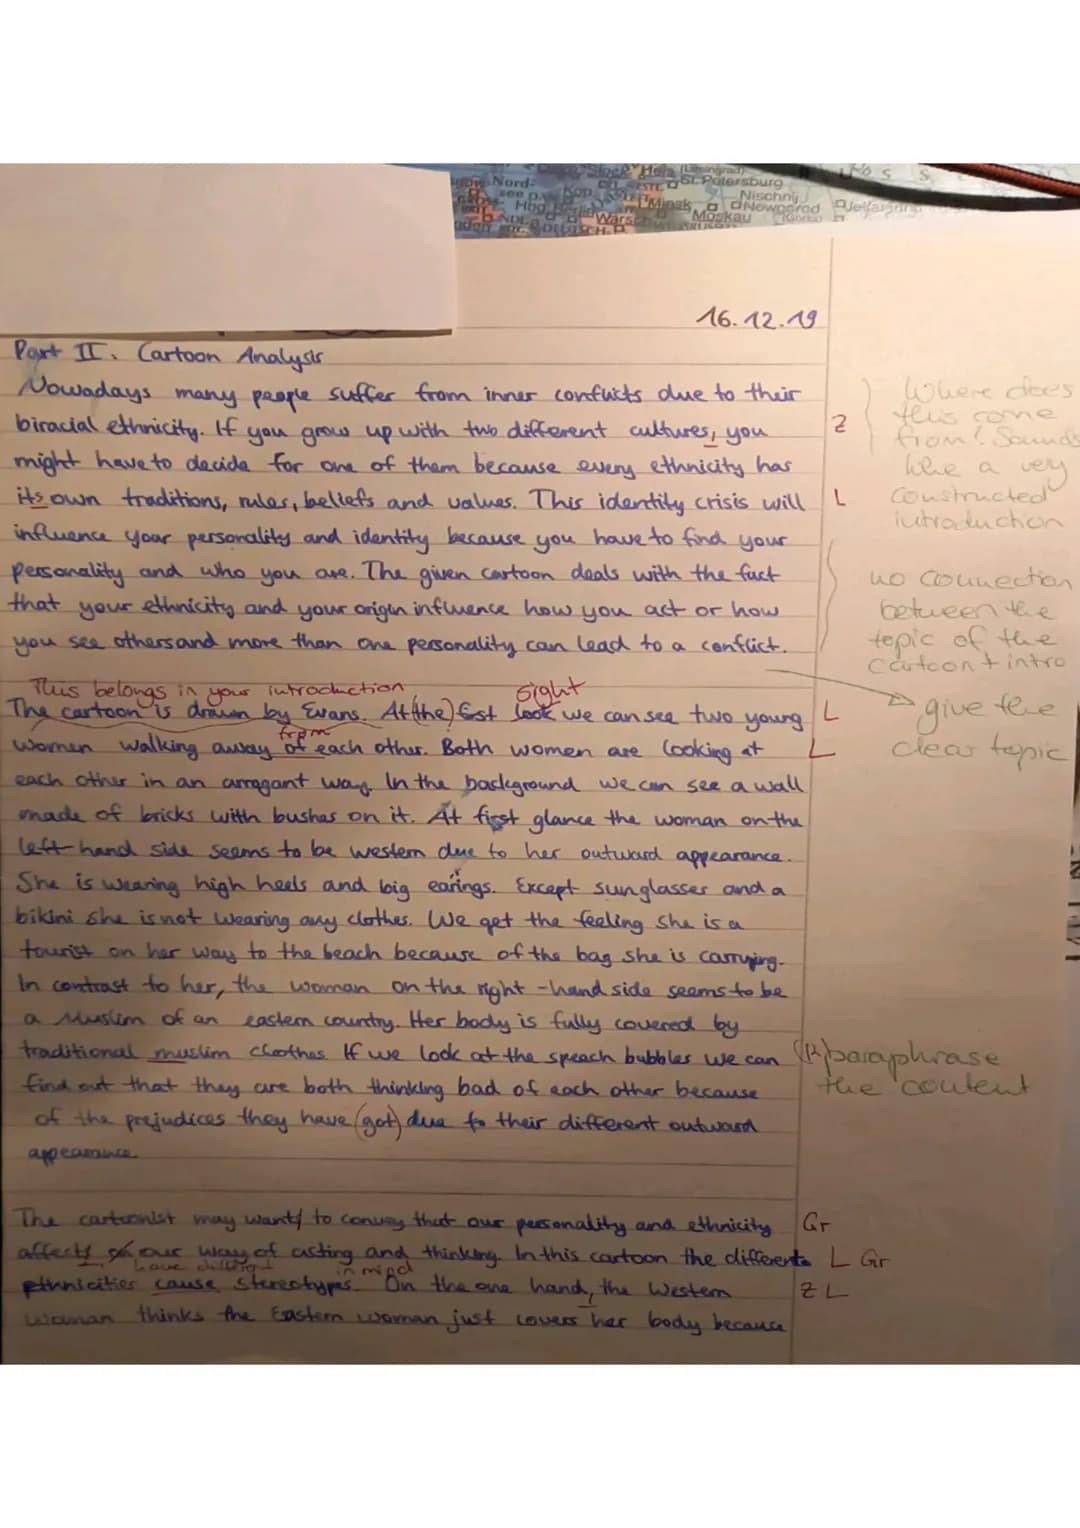 Nord-
see
Stock
Hels
(Leningrad)
St. Petersburg
Nischnij
Nowgorod
(Gorki)
Kop
ESTL
Minsk
Moskau
Hbg
NDL
Warsch
16.12.19
Part II. Cartoon Analysis
Nowadays many people suffer from inner conflicts due to their
Where does
biracial ethnicity. If you grow up with two different cultures, you
Z
this come
from? Sounds
might have to decide for one of them because every ethnicity has
like a very
its own traditions, rules, beliefs and values. This identity crisis will
L
constructed
introduction
influence your personality and identity because you have to find your
personality and who you are. The given cartoon deals with the fact
no connection
that your ethnicity and your origin influence how you act or how
between the
you see others and more than one personality can lead to a conflict.
topic of the
cartoon + intro
This belongs in your introduction
sight
The cartoon is drawn by Evans. At (the) first look we can see two young
L
give the
from
women walking away of each other. Both women are looking at
L
clear topic
each other in an arrogant way. In the background we can see a wall
made of bricks with bushes on it. At first glance the woman on the
left-hand side seems to be western due to her outward appearance.
She is wearing high heels and big earings. Except sunglasses and a
bikini she is not wearing any clothes. We get the feeling she is a
tourist on her way to the beach because of the bag she is carrying.
In contrast to her, the woman on the right-hand side seems to be
a Muslim of an eastern country. Her body is fully covered by
traditional muslim cloothes. If we look at the speach bubbles we can
(R) paraphrase
find out that they are both thinking bad of each other because
the content
of the prejudices they have (got) due to their different outward
appearance.
The cartoonist may wants to convey that our personality and ethnicity
Gr
affects on our way of acting and thinking. In this cartoon the differents
L Gr
have different
in mind
ethnicities cause stereotypes. On the one hand, the Western
Z L
woman thinks the Eastern woman just covers her body because